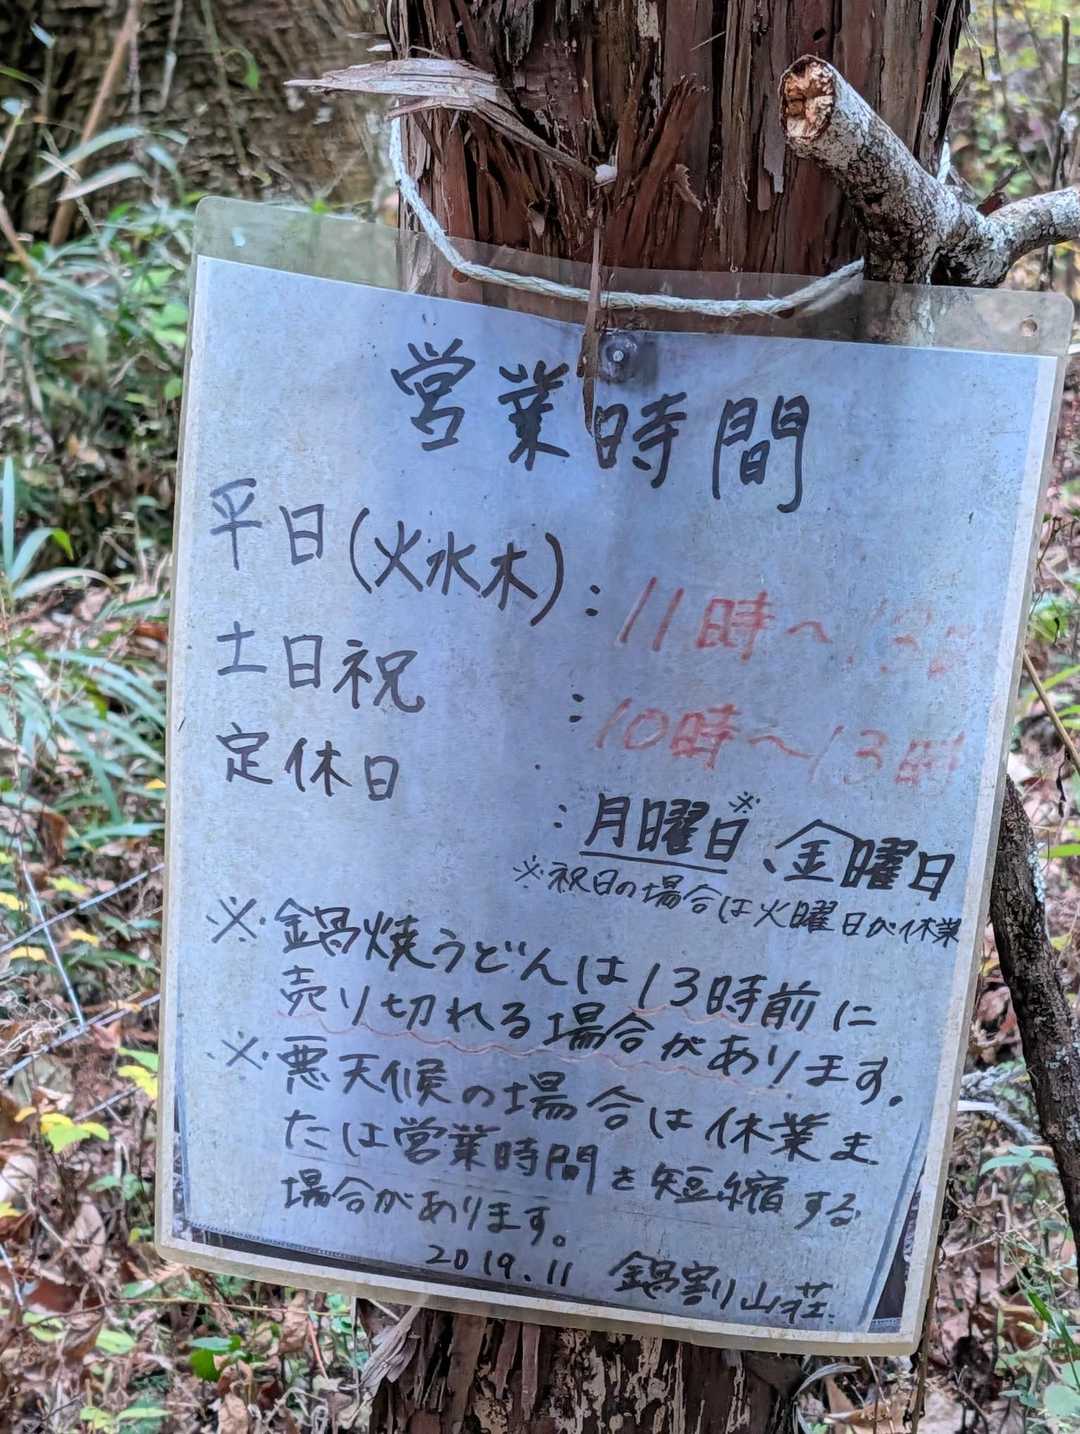 営業時間
平日(火水木):11時～13時
土日祝:10時～13時
定休日:月曜日※、金曜日
※祝日の場合は火曜日が休業
※鍋焼うどんは13時前に
売り切れる場合があります。
※悪天候の場合は休業ま
たは営業時間を短縮する
場合があります。
2019.11 鍋割山荘